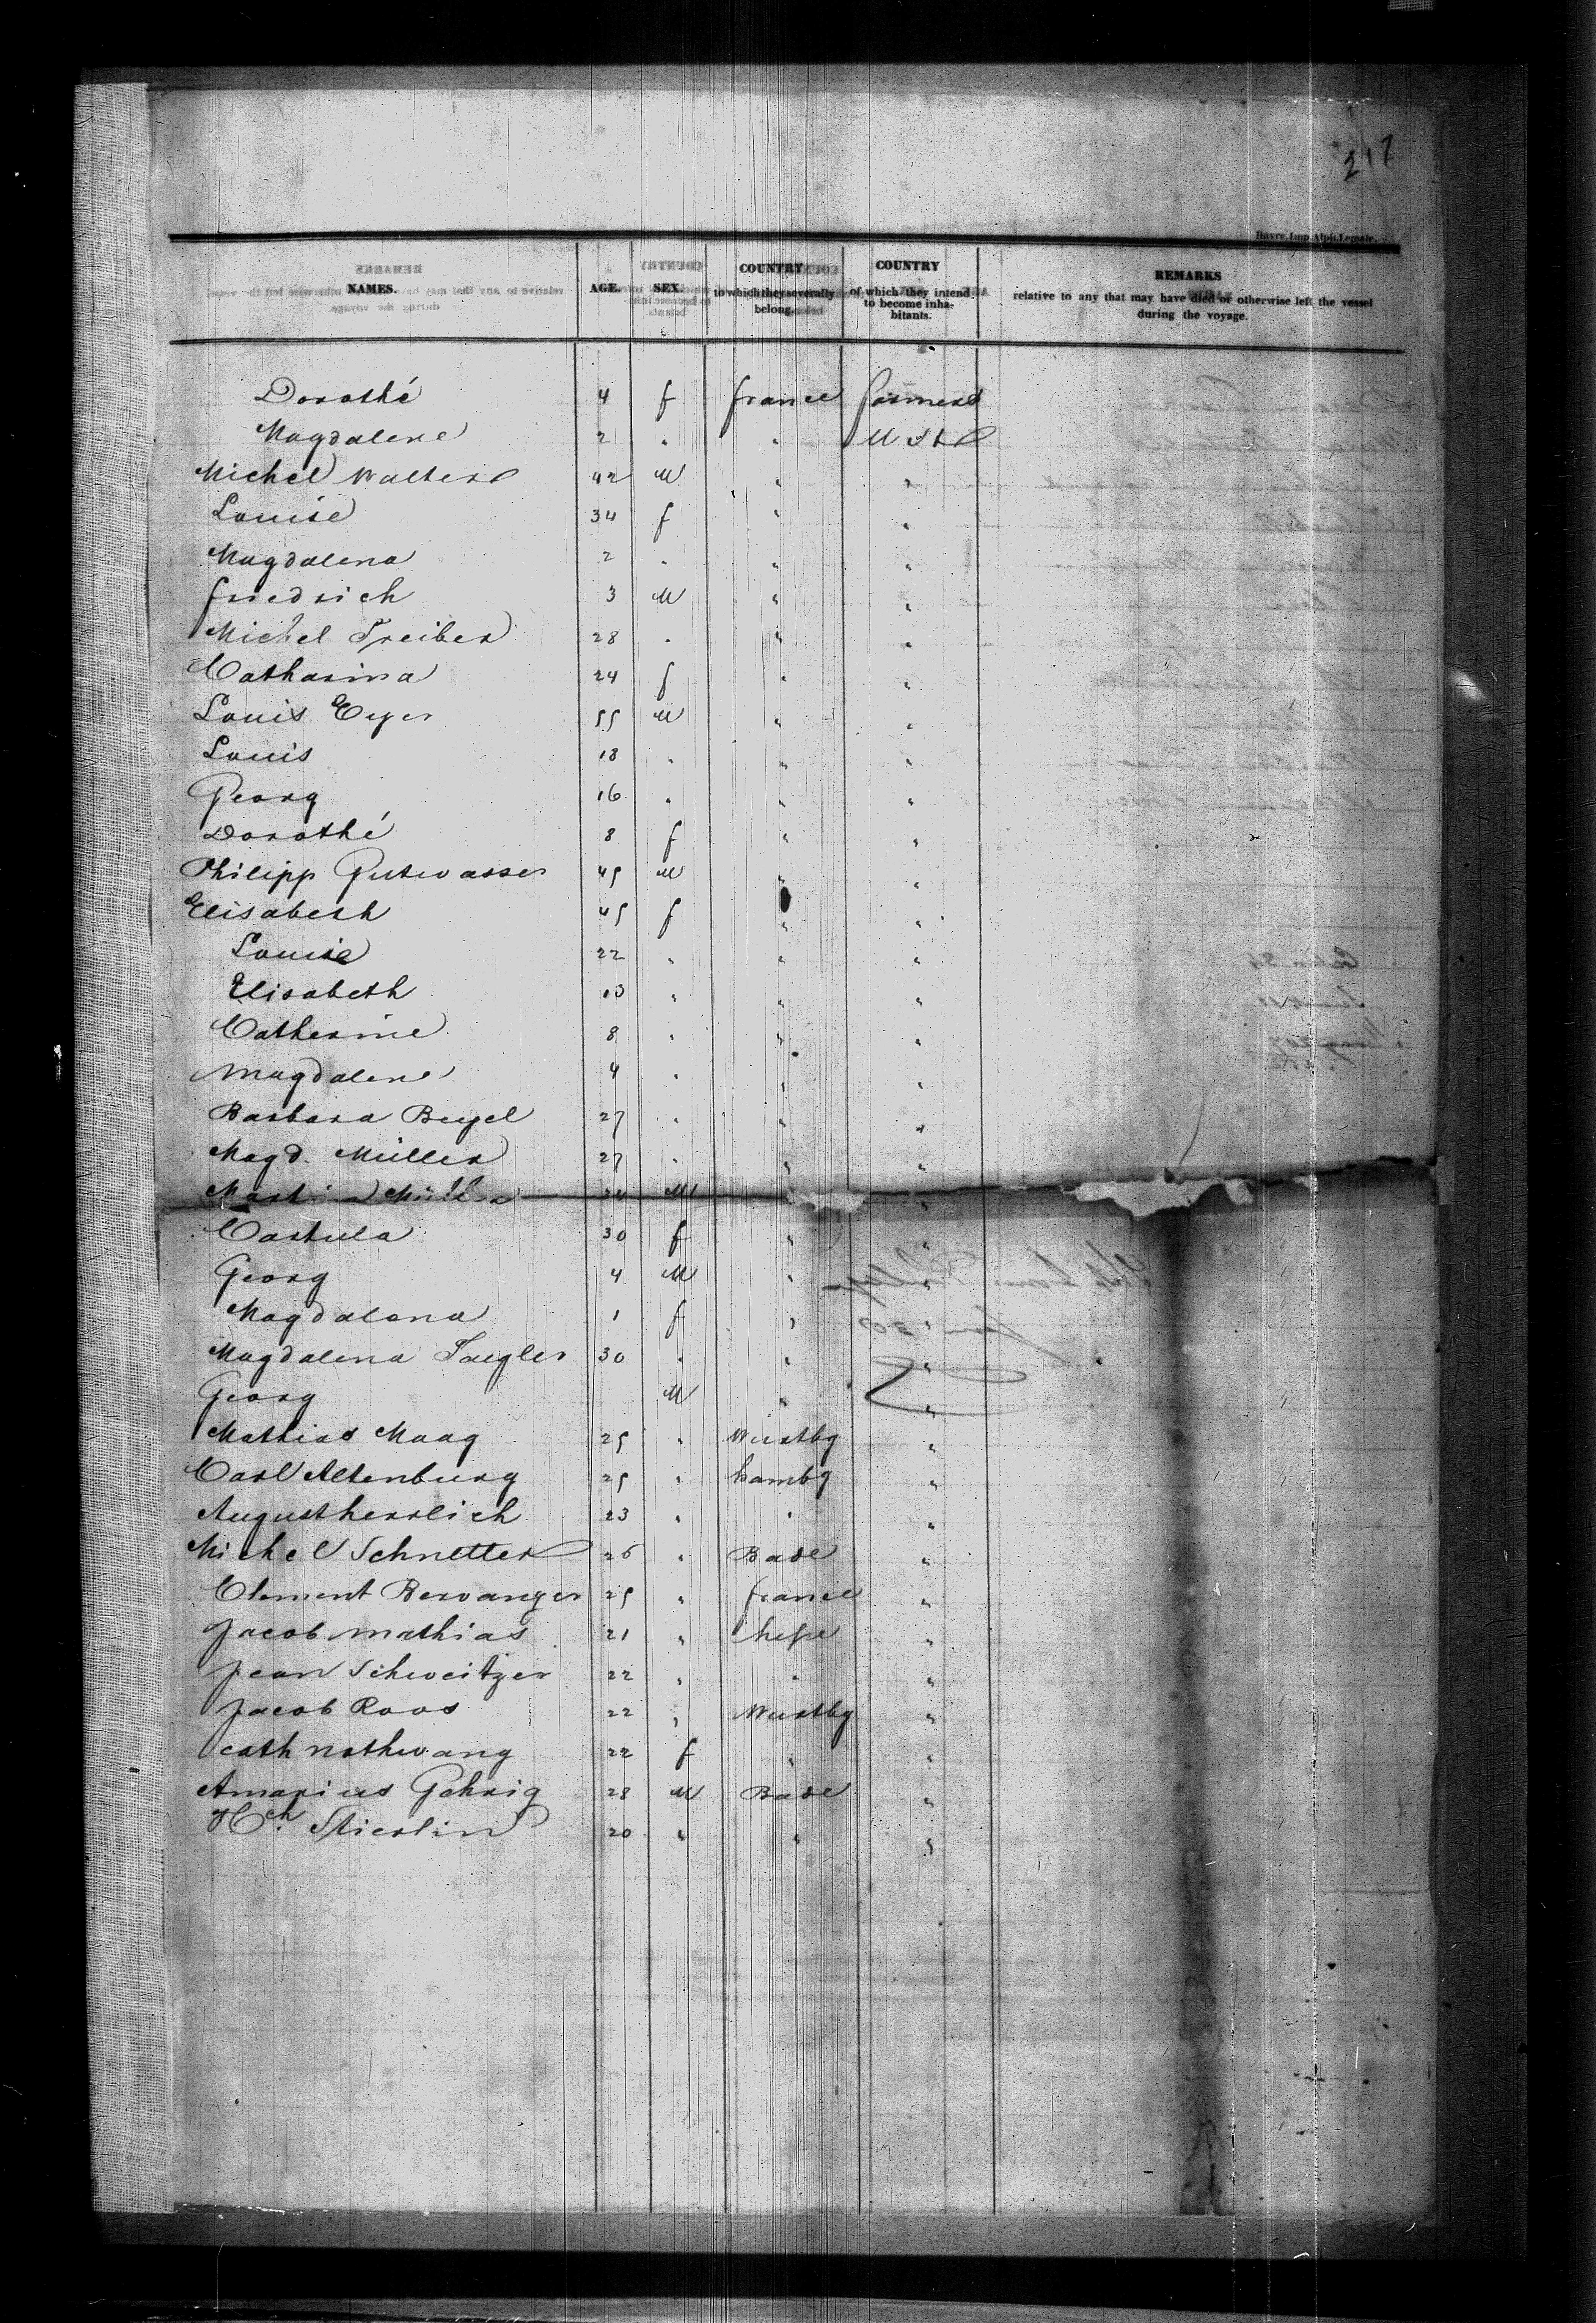 217
Havre. Imp. Alph. Lemale.
NAMES. AGE. SEX. COUNTRY to which they severally belong. COUNTRY of which they intend to become inhabitants. REMARKS relative to any that may have died or otherwise left the vessel during the voyage.
Dorothé 4 f france farmers
Magdalene 2 " " U St
Michel Walter 42 M " "
Louise 34 f " "
Magdalena 2 " " "
friedrich 3 M " "
Michel Treiber 28 " " "
Catharina 24 f " "
Louis Eyer 55 M " "
Louis 18 " " "
Georg 16 " " "
Dorothé 8 f " "
Philipp Gutwasser 45 M " "
Elisabeth 45 f " "
Louise 22 " " "
Elisabeth 13 " " "
Catherine 8 " " "
Magdalene 4 " " "
Barbara Beyel 27 " " "
Magd. Müller 27 " " "
Martin Müller M "
Castula 30 f " "
Georg 4 M " "
Magdalena 1 f " "
Magdalena Taegler 30 " " "
Georg M " "
Mathias Maag 25 " Wurtbg "
Carl Altenburg 25 " hambg "
August herrlich 23 " " "
Michel Schnetter 26 " Bade "
Clement Berwanger 25 " france "
Jacob Mathias 21 " hesse "
Jean Schweitzer 22 " " "
Jacob Roos 22 " Wurtbg "
Cath nothwang 22 f " "
Amarius Gehrig 28 M Bade "
Hch. Stierlin 20 " " "